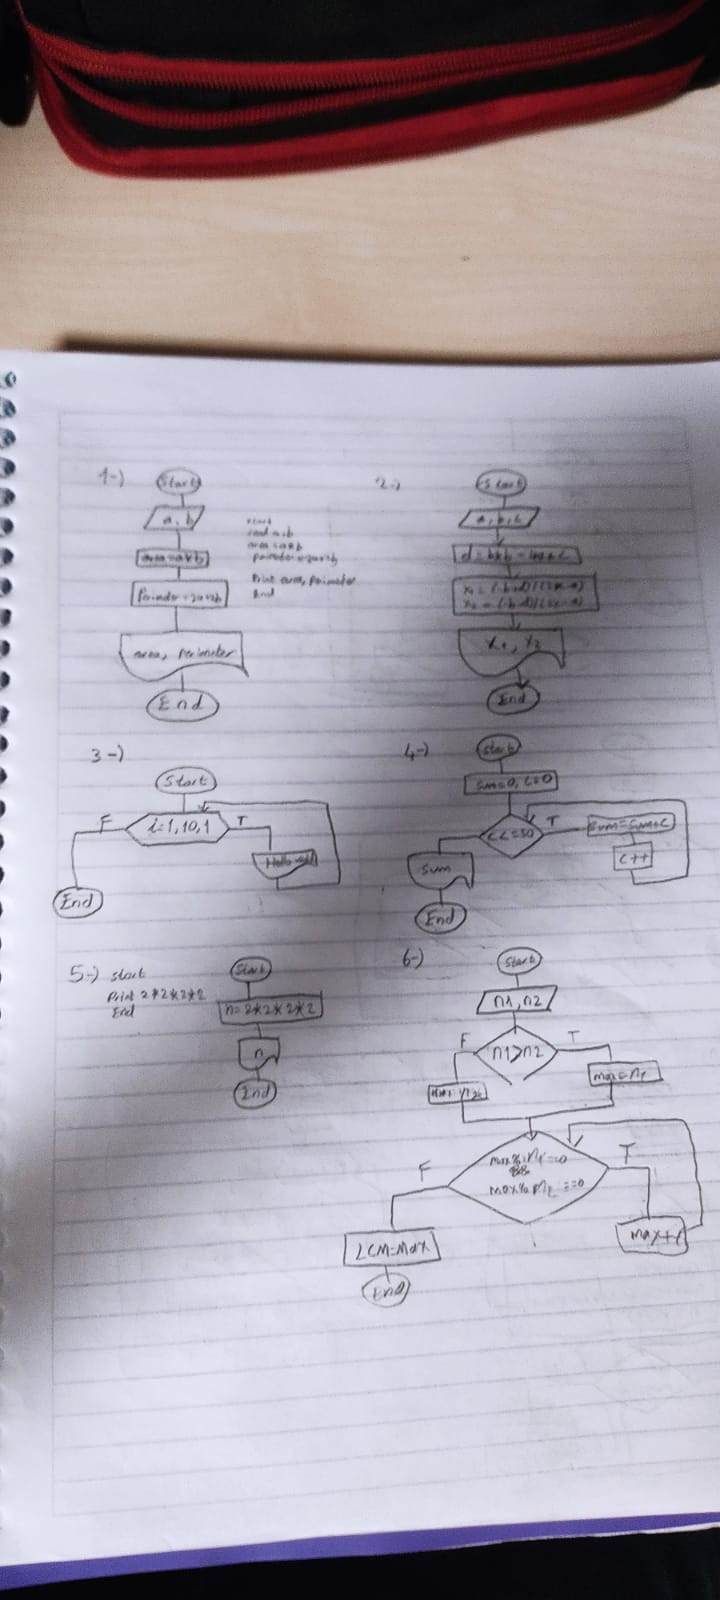 1-)
Start
a, b
area = a*b
Perimeter = 2a+2b
area, perimeter
End
start
read a, b
area = a*b
Print area, perimeter
End
2-)
Start
a, b, c
x1, x2
End
3-)
Start
i=1,10,1
F
T
End
4-)
Start
sum=0, c=0
c<=50
T
sum=sum+c
c++
sum
End
5-) start
Print 2*2*2*2
End
Start
n=2*2*2*2
n
End
6-)
Start
n1, n2
n1>n2
F
T
max=n1
max%n1==0
&&
max%n2==0
F
T
LCM=Max
End